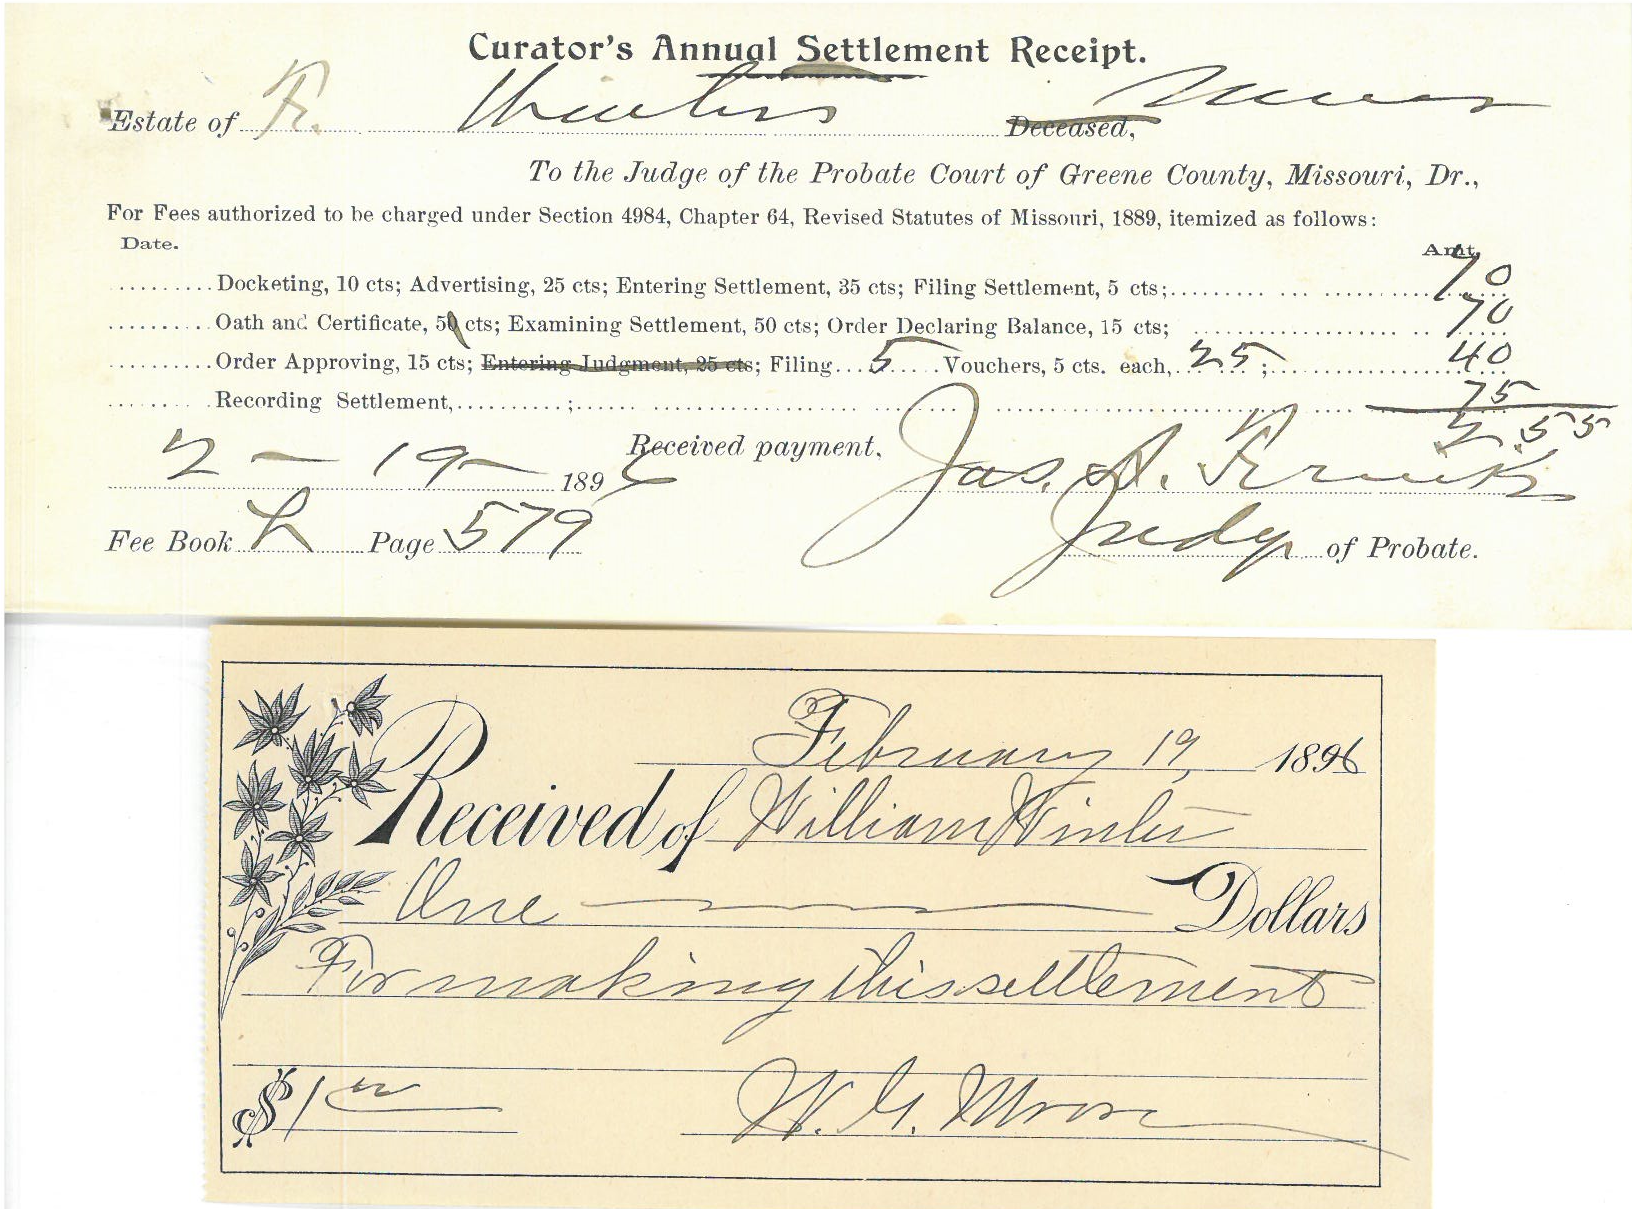 Curator's Annual Settlement Receipt.
Estate of Fr. Winters Deceased, Minor
To the Judge of the Probate Court of Greene County, Missouri, Dr.,
For Fees authorized to be charged under Section 4984, Chapter 64, Revised Statutes of Missouri, 1889, itemized as follows:
Date. Amt.
Docketing, 10 cts; Advertising, 25 cts; Entering Settlement, 35 cts; Filing Settlement, 5 cts; 70
Oath and Certificate, 50 cts; Examining Settlement, 50 cts; Order Declaring Balance, 15 cts; 70
Order Approving, 15 cts; Entering Judgment, 25 cts; Filing 5 Vouchers, 5 cts. each, 25; 40
Recording Settlement, ; 75
2.55
2 - 19 - 1896 Received payment, Jas. A.
Fee Book L Page 579 Judge of Probate.
February 19, 1896
Received of William Winter
One Dollars
For making this settlement
$1 00 W. G. Moore